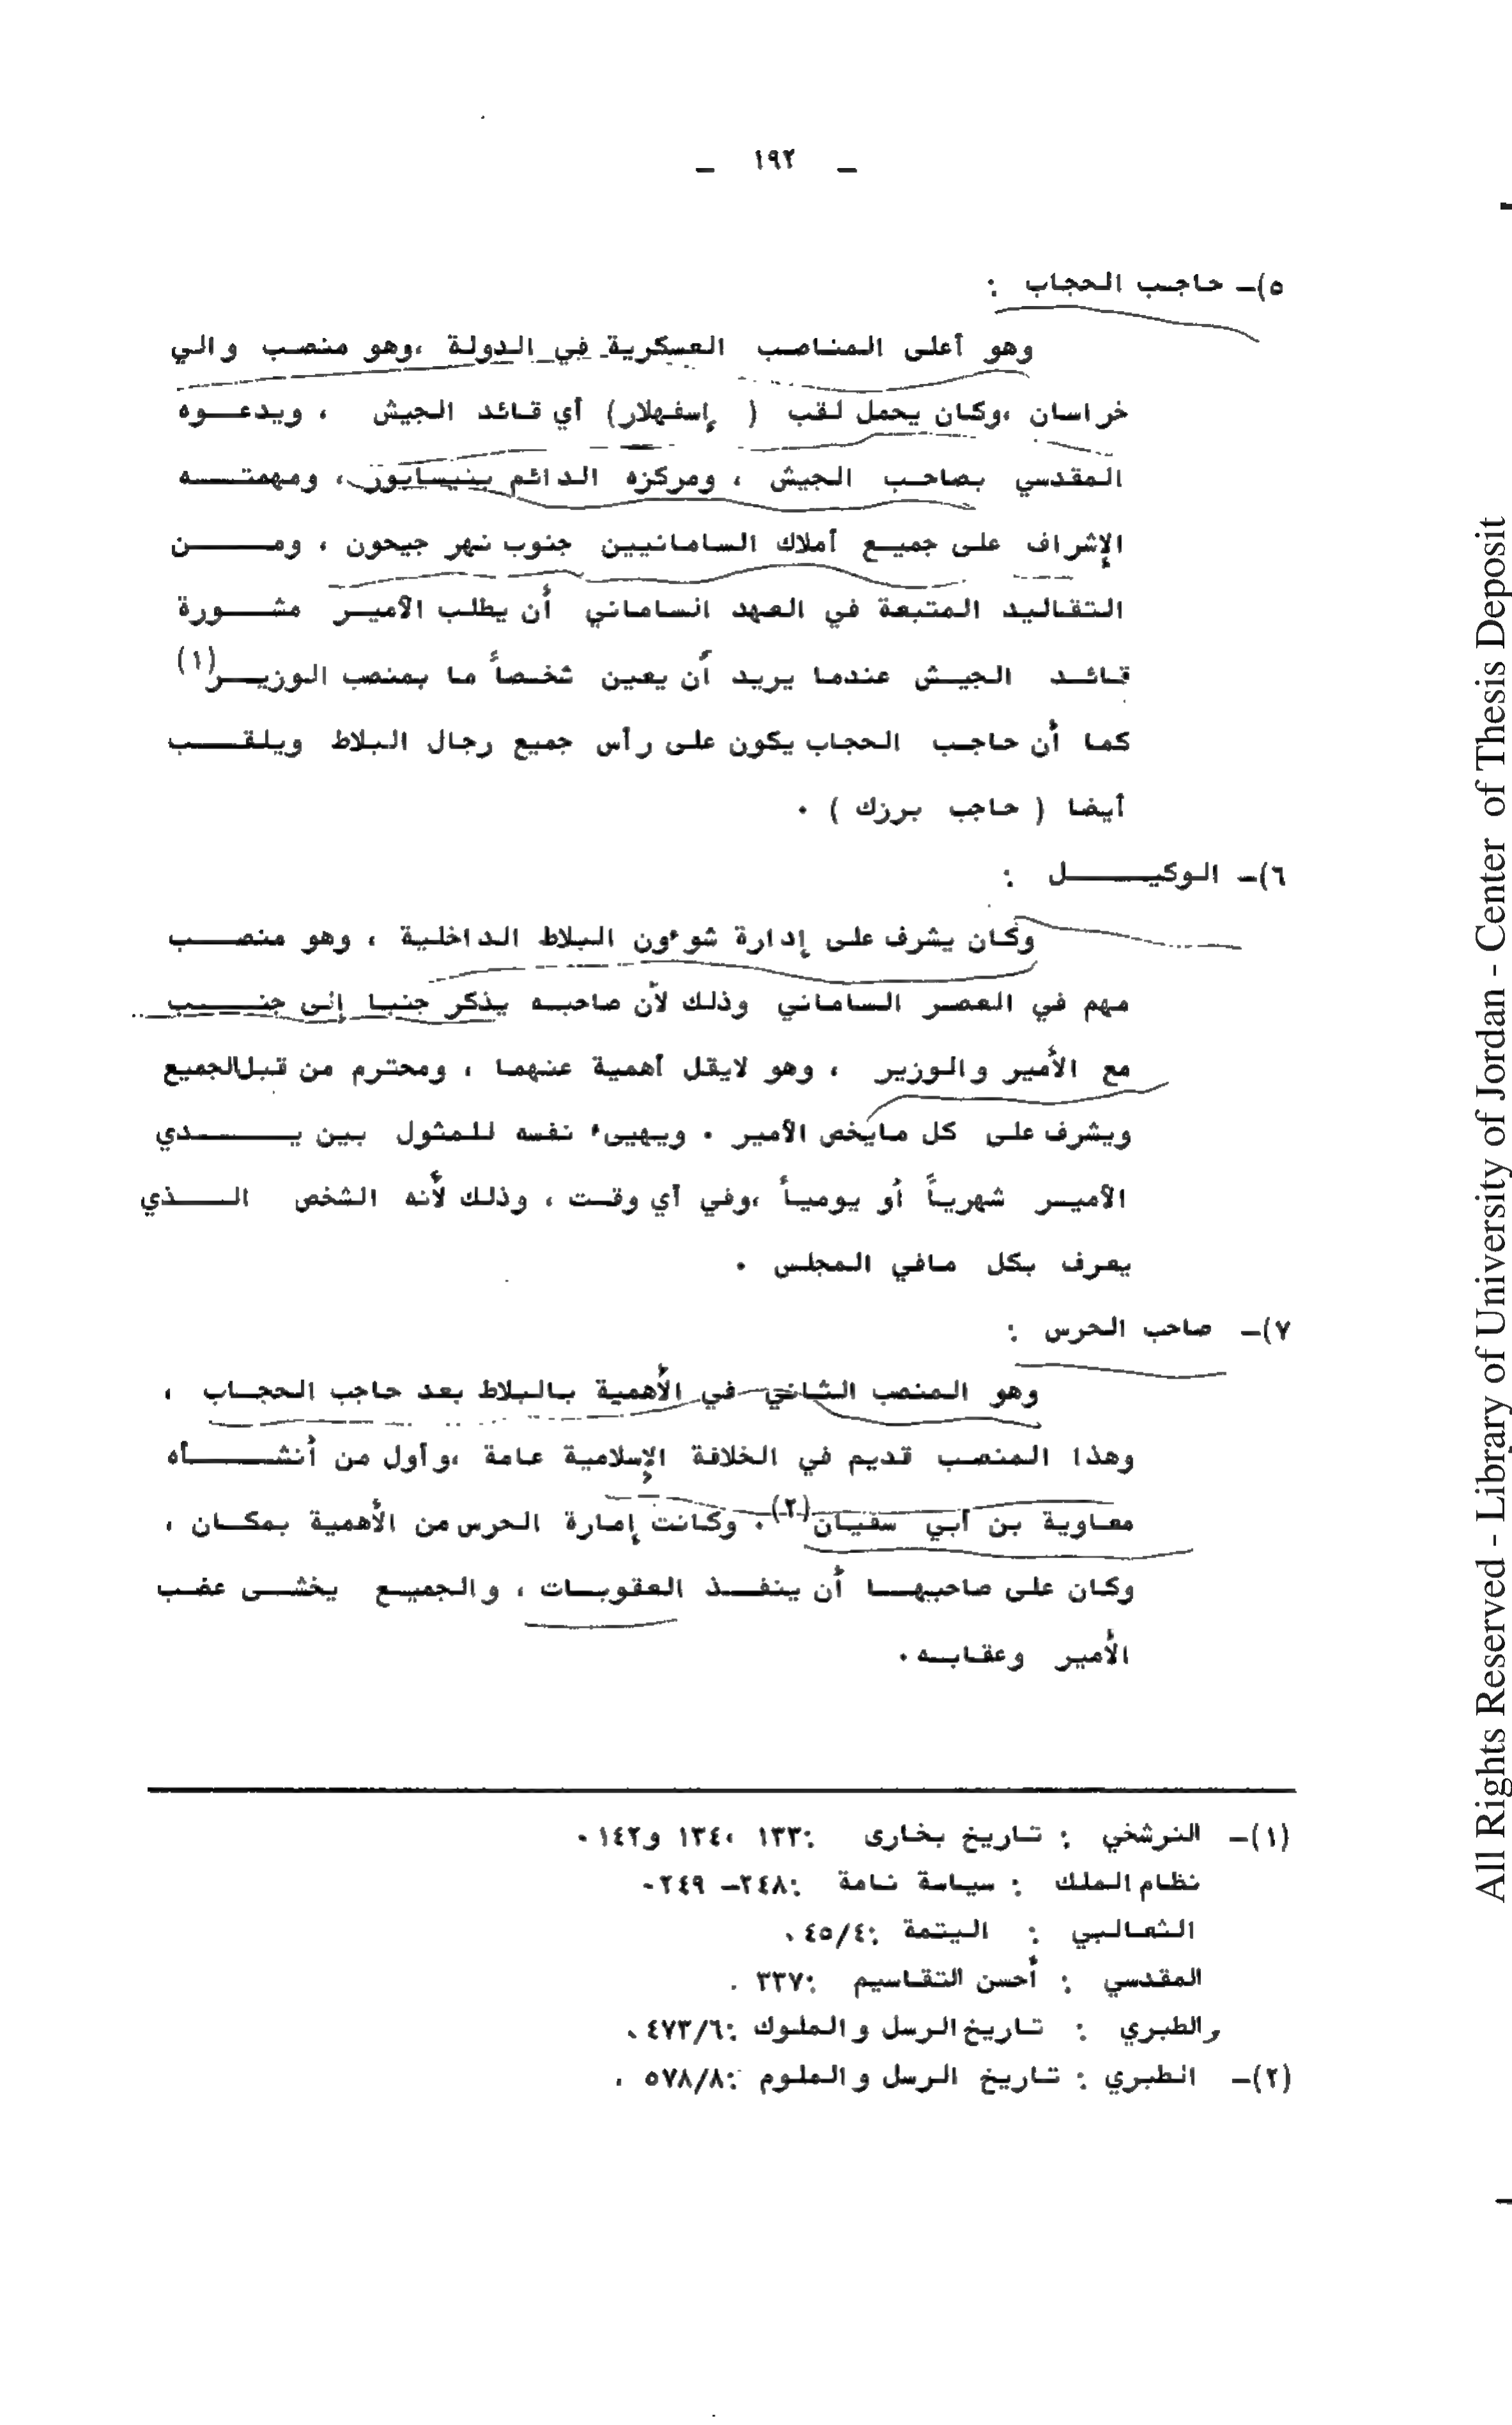 _ ١٩٢ _
٥)- حاجب الحجاب :
وهو أعلى المناصب العسكرية في الدولة ،وهو منصب والي
خراسان ،وكان يحمل لقب ( إسفهلار) أي قائد الجيش ، ويدعوه
المقدسي بصاحب الجيش ، ومركزه الدائم بنيسابور ، ومهمته
الإشراف على جميع أملاك السامانيين جنوب نهر جيحون ، ومن
التقاليد المتبعة في العهد الساماني أن يطلب الأمير مشورة
قائد الجيش عندما يريد أن يعين شخصاً ما بمنصب الوزير(١)
كما أن حاجب الحجاب يكون على رأس جميع رجال البلاط ويلقب
أيضا ( حاجب برزك ) .
٦)- الوكيل :
وكان يشرف على إدارة شوءون البلاط الداخلية ، وهو منصب
مهم في العصر الساماني وذلك لأن صاحبه يذكر جنبا إلى جنب
مع الأمير والوزير ، وهو لايقل أهمية عنهما ، ومحترم من قبل الجميع
ويشرف على كل مايخص الأمير . ويهيىء نفسه للمثول بين يدي
الأمير شهرياً أو يومياً ،وفي أي وقت ، وذلك لأنه الشخص الذي
يعرف بكل مافي المجلس .
٧)- صاحب الحرس :
وهو المنصب الثاني في الأهمية بالبلاط بعد حاجب الحجاب ،
وهذا المنصب قديم في الخلافة الإسلامية عامة ،وأول من أنشأه
معاوية بن أبي سفيان(٢). وكانت إمارة الحرس من الأهمية بمكان ،
وكان على صاحبها أن ينفذ العقوبات ، والجميع يخشى غضب
الأمير وعقابه .
(١)- النرشخي : تاريخ بخارى :١٣٣ ،١٣٤ و١٤٢ .
نظام الملك : سياسة نامة :٢٤٨- ٢٤٩.
الثعالبي : اليتمة :٤٥/٤ .
المقدسي : أحسن التقاسيم :٣٣٧ .
والطبري : تاريخ الرسل والملوك :٤٧٣/٦ .
(٢)- الطبري : تاريخ الرسل والملوم :٥٧٨/٨ .
All Rights Reserved - Library of University of Jordan - Center of Thesis Deposit